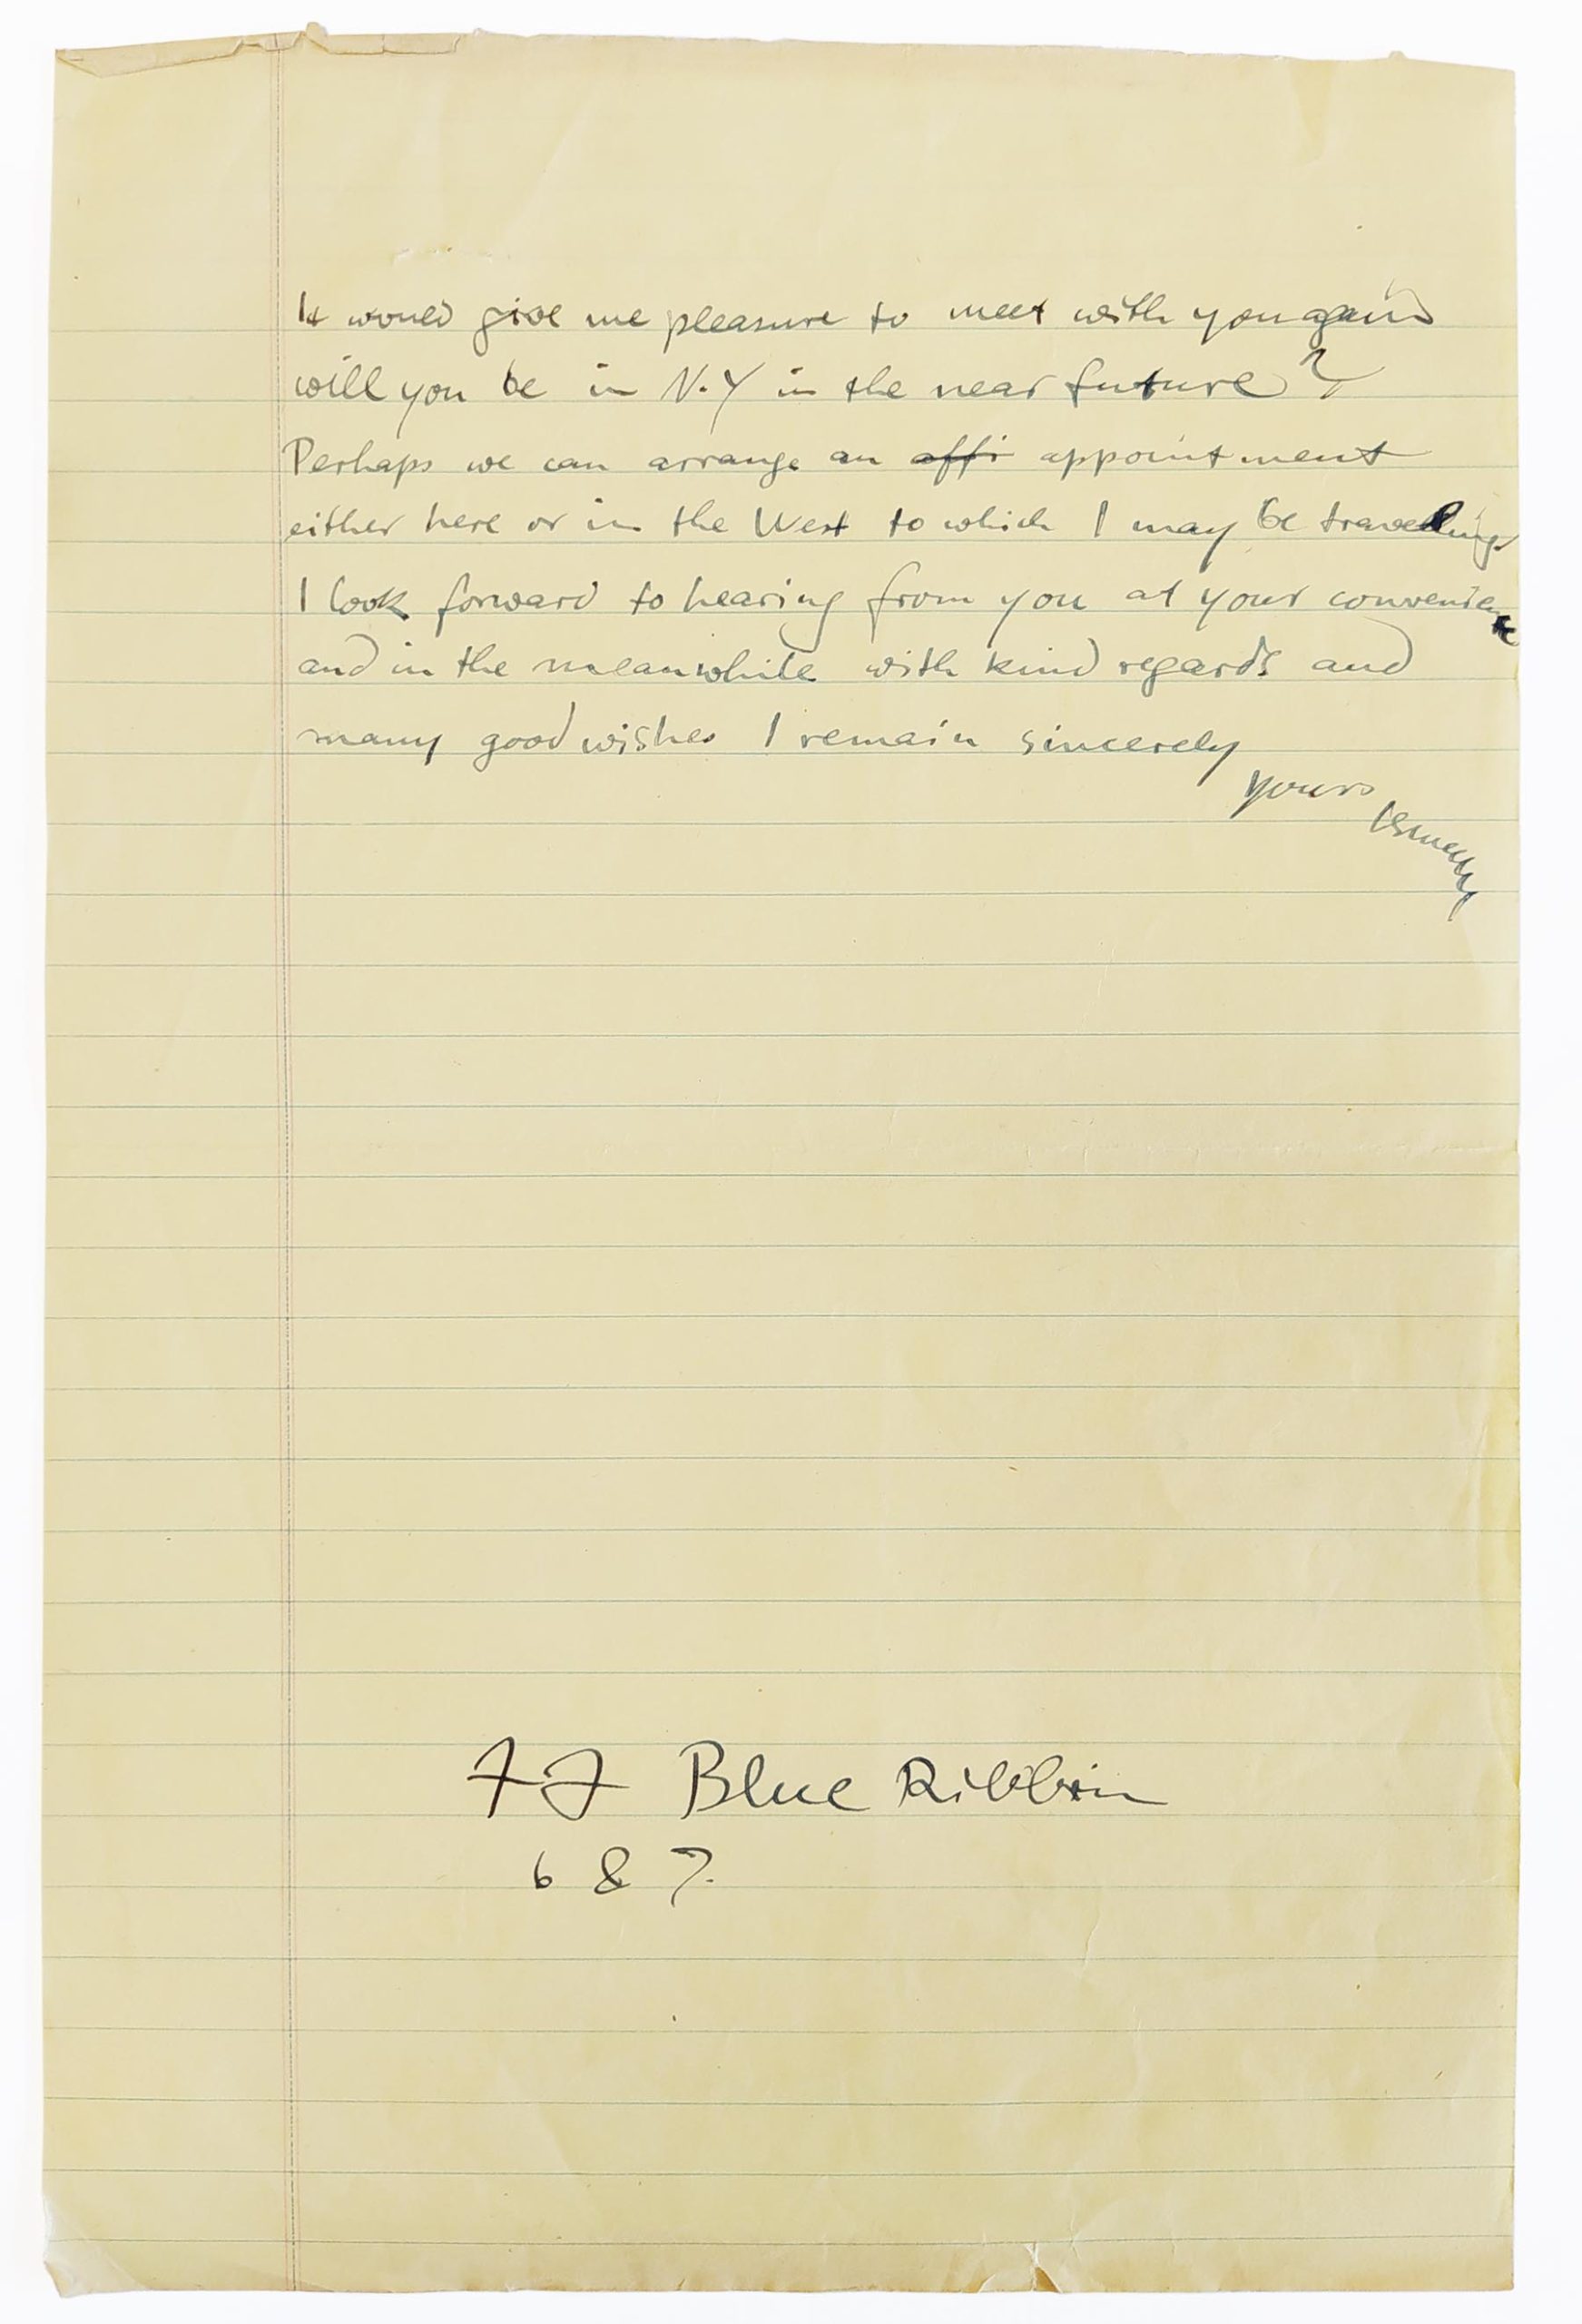 It would give me pleasure to meet with you again
will you be in N.Y in the near future?
Perhaps we can arrange an affi appointment
either here or in the West to which I may be travelling
I look forward to hearing from you at your convenience
and in the meanwhile with kind regards and
many good wishes I remain sincerely
yours
Blue Ribbon
6 & 7.